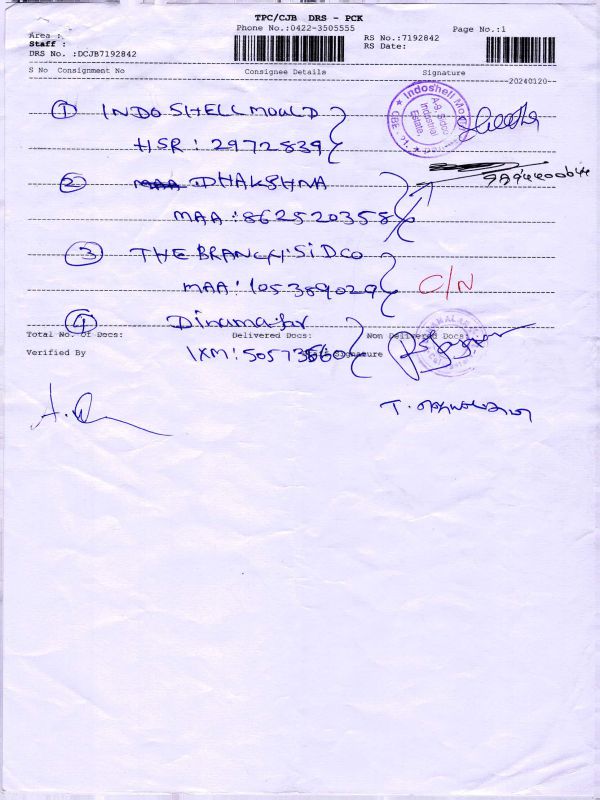 TPC/CJB DRS - PCK
Phone No.:0422-3505555
Page No.:1
Area :
Staff :
DRS No. :DCJB7192842
RS No.:7192842
RS Date:
S No Consignment No Consignee Details Signature
20240120
① INDO SHELL MOULD
HSR : 2972839
Indoshell Mould
A-9, Sidco
Industrial
Estate,
② DHAKSHNA
MAA : 862520358
③ THE BRANCH : SIDCO
MAA : 105389029
C/N
④ Dinamalar
Total No. Of Docs: Delivered Docs: Non Delivered Docs:
Verified By Signature
IXM :